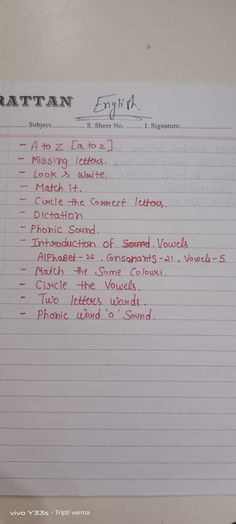 RATTAN
English.
Subject S. Sheet No. I. Signature
- A to Z [a to z]
- Missing letters.
- Look & write.
- Match it.
- Circle the Correct letters.
- Dictation
- Phonic Sound.
- Introduction of Sound. Vowels
Alphabet - 26, Consonants - 21, Vowels - 5.
- Match the Same Colour.
- Circle the Vowels.
- Two letters Words.
- Phonic Word 'a' Sound.
vivo Y33s - Tripti verma